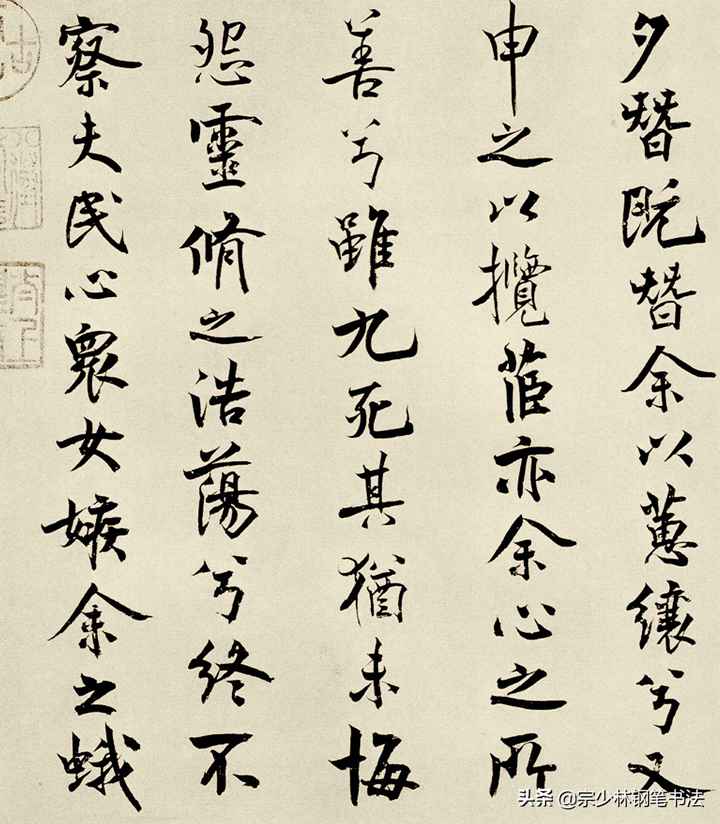 夕替既替余以蕙纕兮又
申之以攬茝亦余心之所
善兮雖九死其猶未悔
怨靈脩之浩蕩兮終不
察夫民心衆女嫉余之蛾
头条 @宗少林钢笔书法